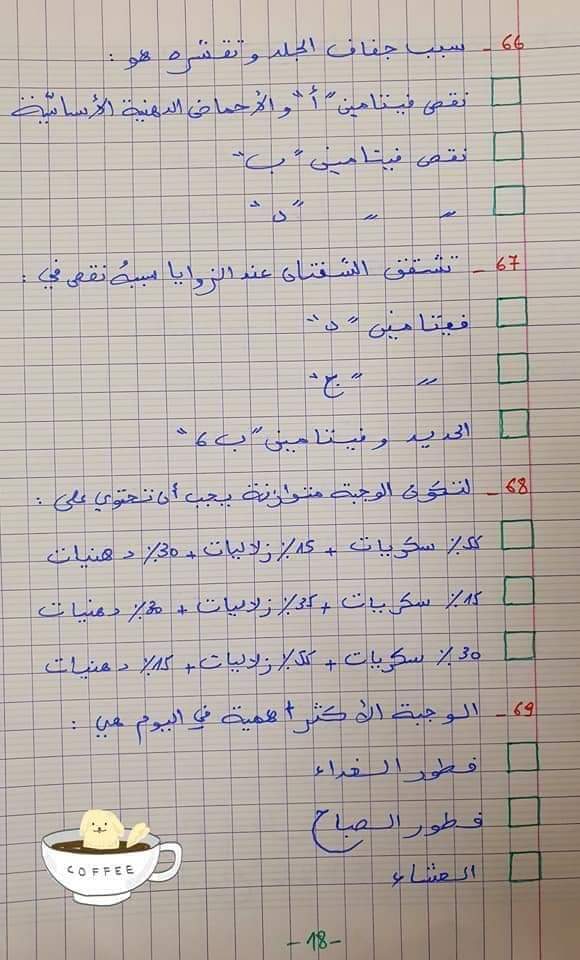 66 - سبب جفاف الجلد وتقشره هو :
نقص فيتامين "أ" والأحماض الدهنية الأساسيّة
نقص فيتامين "ب"
" " "د"
67 - تشقق الشفتان عند الزوايا سببهُ نقص في :
فيتامين "د"
" "ج"
الحديد وفيتامين "ب 6"
68 - لتكون الوجبة متوازنة يجب أن تحتوي على :
55٪ سكريات + 15٪ زلاليات + 30٪ دهنيات
15٪ سكريات + 35٪ زلاليات + 30٪ دهنيات
30٪ سكريات + 55٪ زلاليات + 15٪ دهنيات
69 - الوجبة الأكثر أهمية في اليوم هي :
فطور الغداء
فطور الصباح
العشاء
COFFEE
- 18 -